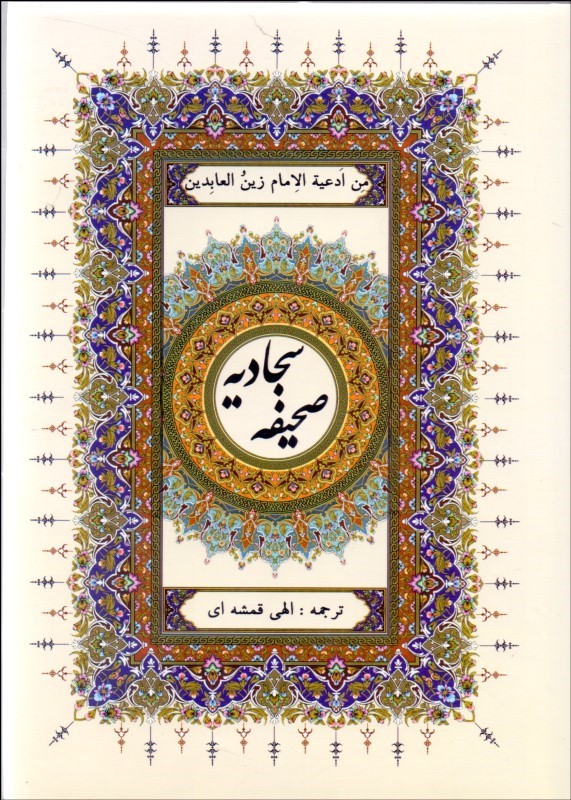 من اَدعیة الاِمام زینُ العابِدین
صحیفه
سجادیه
ترجمه : الهی قمشه ای